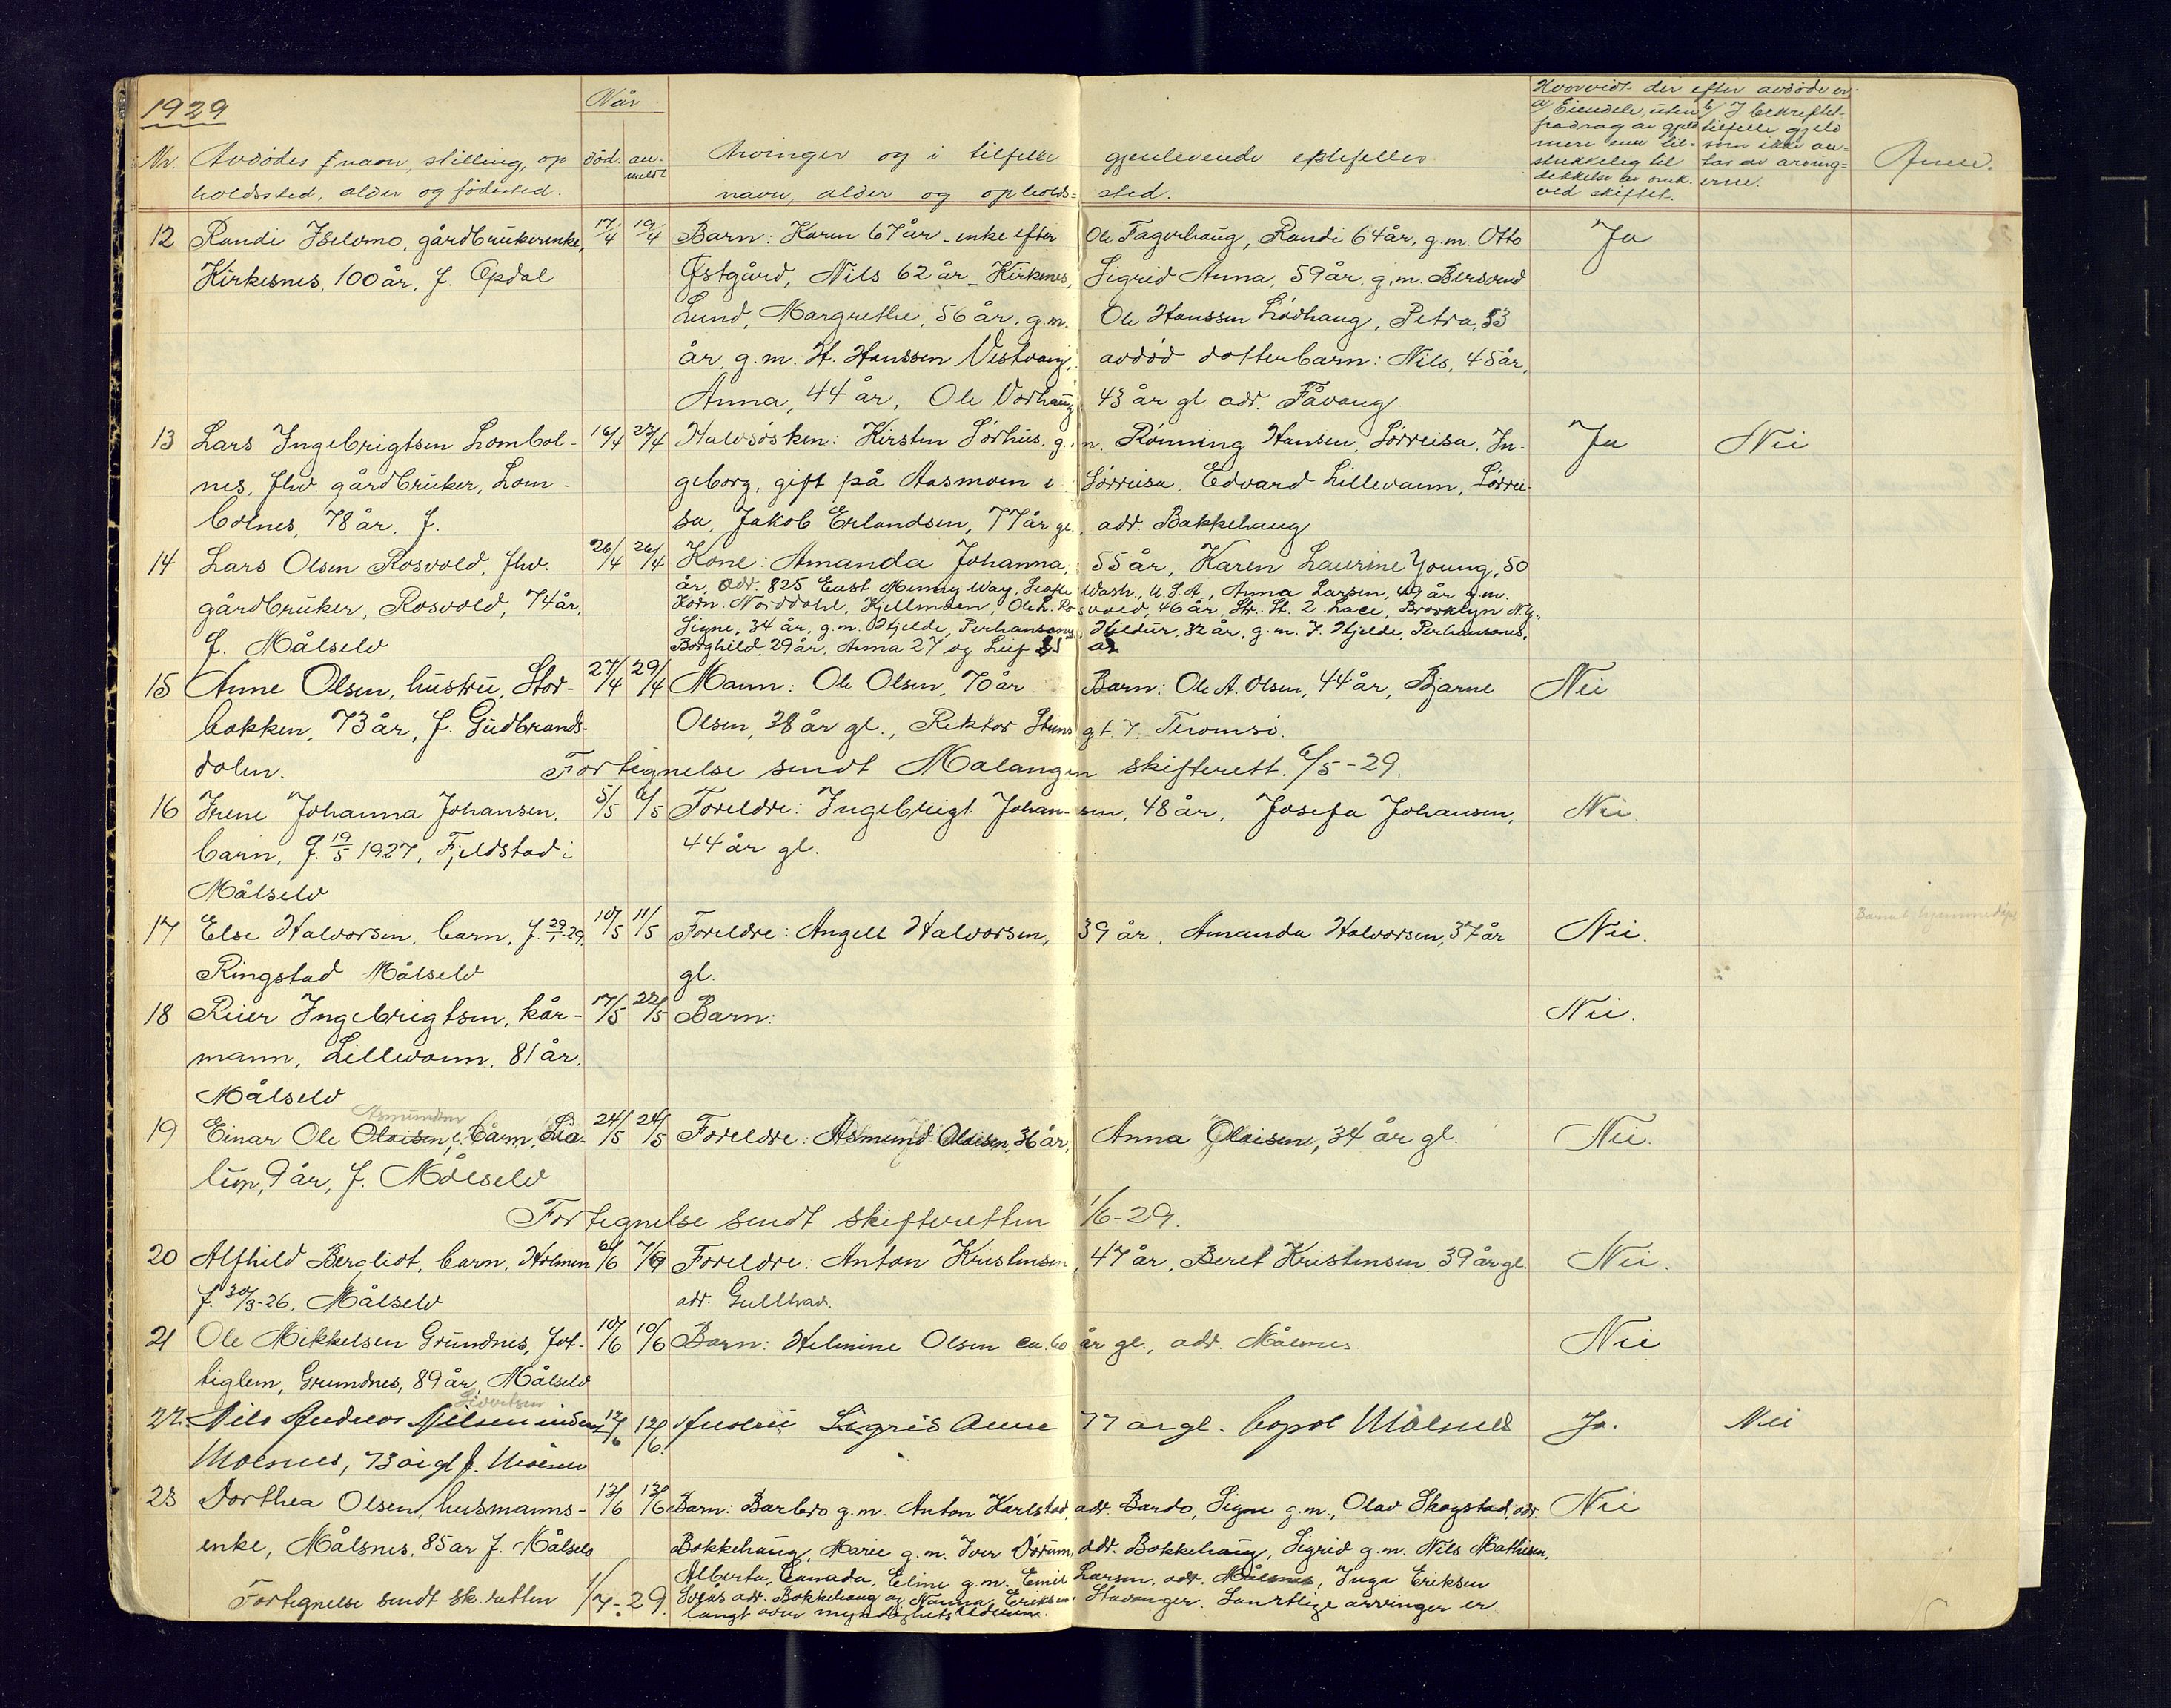 1929
Når
Hvorvidt der efter avdøde er:
Nr. Avdødes fnavn, stilling, op
holdssted, alder og fødested.
død. an-
meldt
Arvinger og i tilfelle gjenlevende ektefelles
navn, alder og opholds- sted.
a/ Eiendele uten
fradrag av gjeld
mere enn til-
strekkelig til
dekkelse av omk.
ved skiftet.
b/ I bekreftet-
tilfelle gjeld
som ikke an-
tas av arving-
erne.
Anm.
12 Randi Iselvmo, gårdbrukerenke, 17/4 19/4 Barn: Karen 67 år - enke efter Ole Fagerhaug, Randi 64 år, g.m. Otto Ja
Kirkesnes, 100 år, f. Opdal Østgård, Nils 62 år - Kirkesnes, Sigrid Anna, 59 år, g.m. Bersvend
Lund, Margrethe, 56 år, g.m. Ole Hanssen Lødhaug, Petra, 53
år, g.m. H. Hanssen Vestvang, avdød datterbarn: Nils, 45 år,
Anna, 44 år, Ole Vorhaug 43 år gl. adr. Fåvang
13 Lars Ingebrigtsen Lombol- 16/4 23/4 Halvsøsken: Kirsten Sørhus, g.m. Rønning Hansen, Sørreisa, In- Ja Nei
nes, fhv. gårdbruker, Lom- geborg, gift på Aasmoen i Sørreisa, Edvard Lillevann, Sørrei-
bolnes, 78 år, f. sa, Jakob Erlandsen, 77 år gl. adr. Bakkehaug
14 Lars Olsen Rosvold, fhv. 26/4 26/4 Kone: Amanda Johanna, 55 år, Karen Laurine Young, 50
år, adr. 825 East Wash., U.S.A., Anna Larsen, 49 år g.m.
gårdbruker, Rosvold, 74 år, Korn. Norddahl, Kjellmoen, Ole L. Rosvold 46 år, Str. St. 2. Brooklyn N.Y.
Signe, 34 år, g.m. Hjelde, Perhansenes, Hildur, 32 år, g.m. J. Hjelde, Perhansenes,
f. Målselv Borghild 29 år, Anna 27 og Leif 25 år
15 Anne Olsen, hustru, Stor- 27/4 29/4 Mann: Ole Olsen, 70 år Barn: Ole A. Olsen, 44 år, Bjarne Nei
bakken, 73 år, f. Gudbrands- Olsen, 38 år gl., Rektor Steens gt. 7, Tromsø.
dalen. Fortegnelse sendt Malangen skifterett. 6/5-29.
16 Irene Johanna Johansen, 5/5 6/5 Foreldre: Ingebrigt Johan- sen, 48 år, Josefa Johansen, Nei
barn, f. 19/5 1927, Fjeldstad i 44 år gl.
Målselv
17 Else Halvorsen, barn, f. 29/1-29, 10/5 11/5 Foreldre: Angell Halvorsen, 39 år, Amanda Halvorsen, 37 år Nei. Barnet hjemmedøpt
Ringstad Målselv gl.
18 Reier Ingebrigtsen, kår- 17/5 22/5 Barn: Nei.
mann, Lillevann, 81 år,
Målselv
Asmundsen
19 Einar Ole Olaisen, barn, Lia- 24/5 24/5 Foreldre: Asmund Olaisen, 36 år, Anna Olaisen, 34 år gl. Nei.
9 år, f. Målselv
Fortegnelse sendt skifteretten 1/6-29.
20 Alfhild Bergliot, barn, Holmen 6/6 7/6 Foreldre: Anton Kristensen, 47 år, Beret Kristensen, 39 år gl. Nei.
f. 30/3-26, Målselv adr. Gullhav.
21 Ole Mikkelsen Grundnes, fat- 10/6 10/6 Barn: Helmine Olsen ca. 60 år gl., adr. Målsnes Nei
tiglem, Grundnes, 89 år, Målselv
Sivertsen
22. Nils Andreas Nilsen 12/6 12/6 Hustru Sigrid Anne 77 år gl. bopæl Målsnes Ja. Nei
Målsnes, 73 år gl f. Målselv
23 Dorthea Olsen, husmanns- 13/6 13/6 Barn: Barbro g.m. Anton Karlstad, adr. Bardo, Signe g.m., Olav Skogstad, adr. Nei
enke, Målsnes, 85 år f. Målselv Bakkehaug, Marie g.m. Iver Vårum, adr. Bakkehaug, Sigrid g.m. Nils Mathisen,
Alberta, Canada, Eline g.m. Emil Larsen, adr. Målsnes, Inga Eriksen
Fortegnelse sendt sk.retten 1/7-29. adr. Bakkehaug og Nanna Eriksen Stavanger. Samtlige arvinger er
langt over myndighetsalderen.